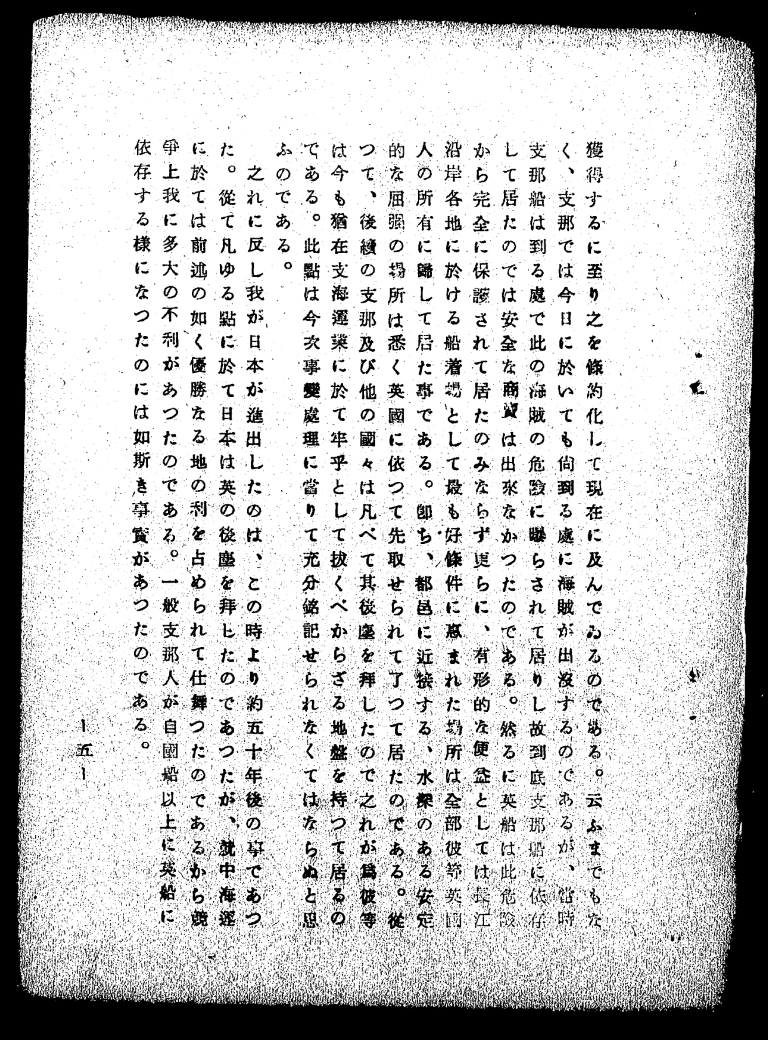 獲得するに至り之を條約化して現在に及んでゐるのである。云ふまでもな
く、支那では今日に於いても尙到る處に海賊が出沒するのであるが、當時
支那船は到る處で此の海賊の危險に曝らされて居りし故到底支那船に依存
して居たのでは安全な商賣は出來なかつたのである。然るに英船は此危險
から完全に保護されて居たのみならず更らに、有形的な便益としては長江
沿岸各地に於ける船着場として最も好條件に惠まれた場所は全部彼等英國
人の所有に歸して居た事である。卽ち、都邑に近接する、水深のある安定
的な屈强の場所は悉く英國に依つて先取せられて了つて居たのである。從
つて、後續の支那及び他の國々は凡べて其後塵を拜したので之れが爲彼等
は今も猶在支海運業に於て牢乎として拔くべからざる地盤を持つて居るの
である。此點は今次事變處理に當りて充分銘記せられなくてはならぬと思
ふのである。
之れに反し我が日本が進出したのは、この時より約五十年後の事であつ
た。從て凡ゆる點に於て日本は英の後塵を拜したのであつたが、就中海運
に於ては前述の如く優勝なる地の利を占められて仕舞つたのであるから競
爭上我に多大の不利があつたのである。一般支那人が自國船以上に英船に
依存する樣になつたのには如斯き事實があつたのである。
—五—